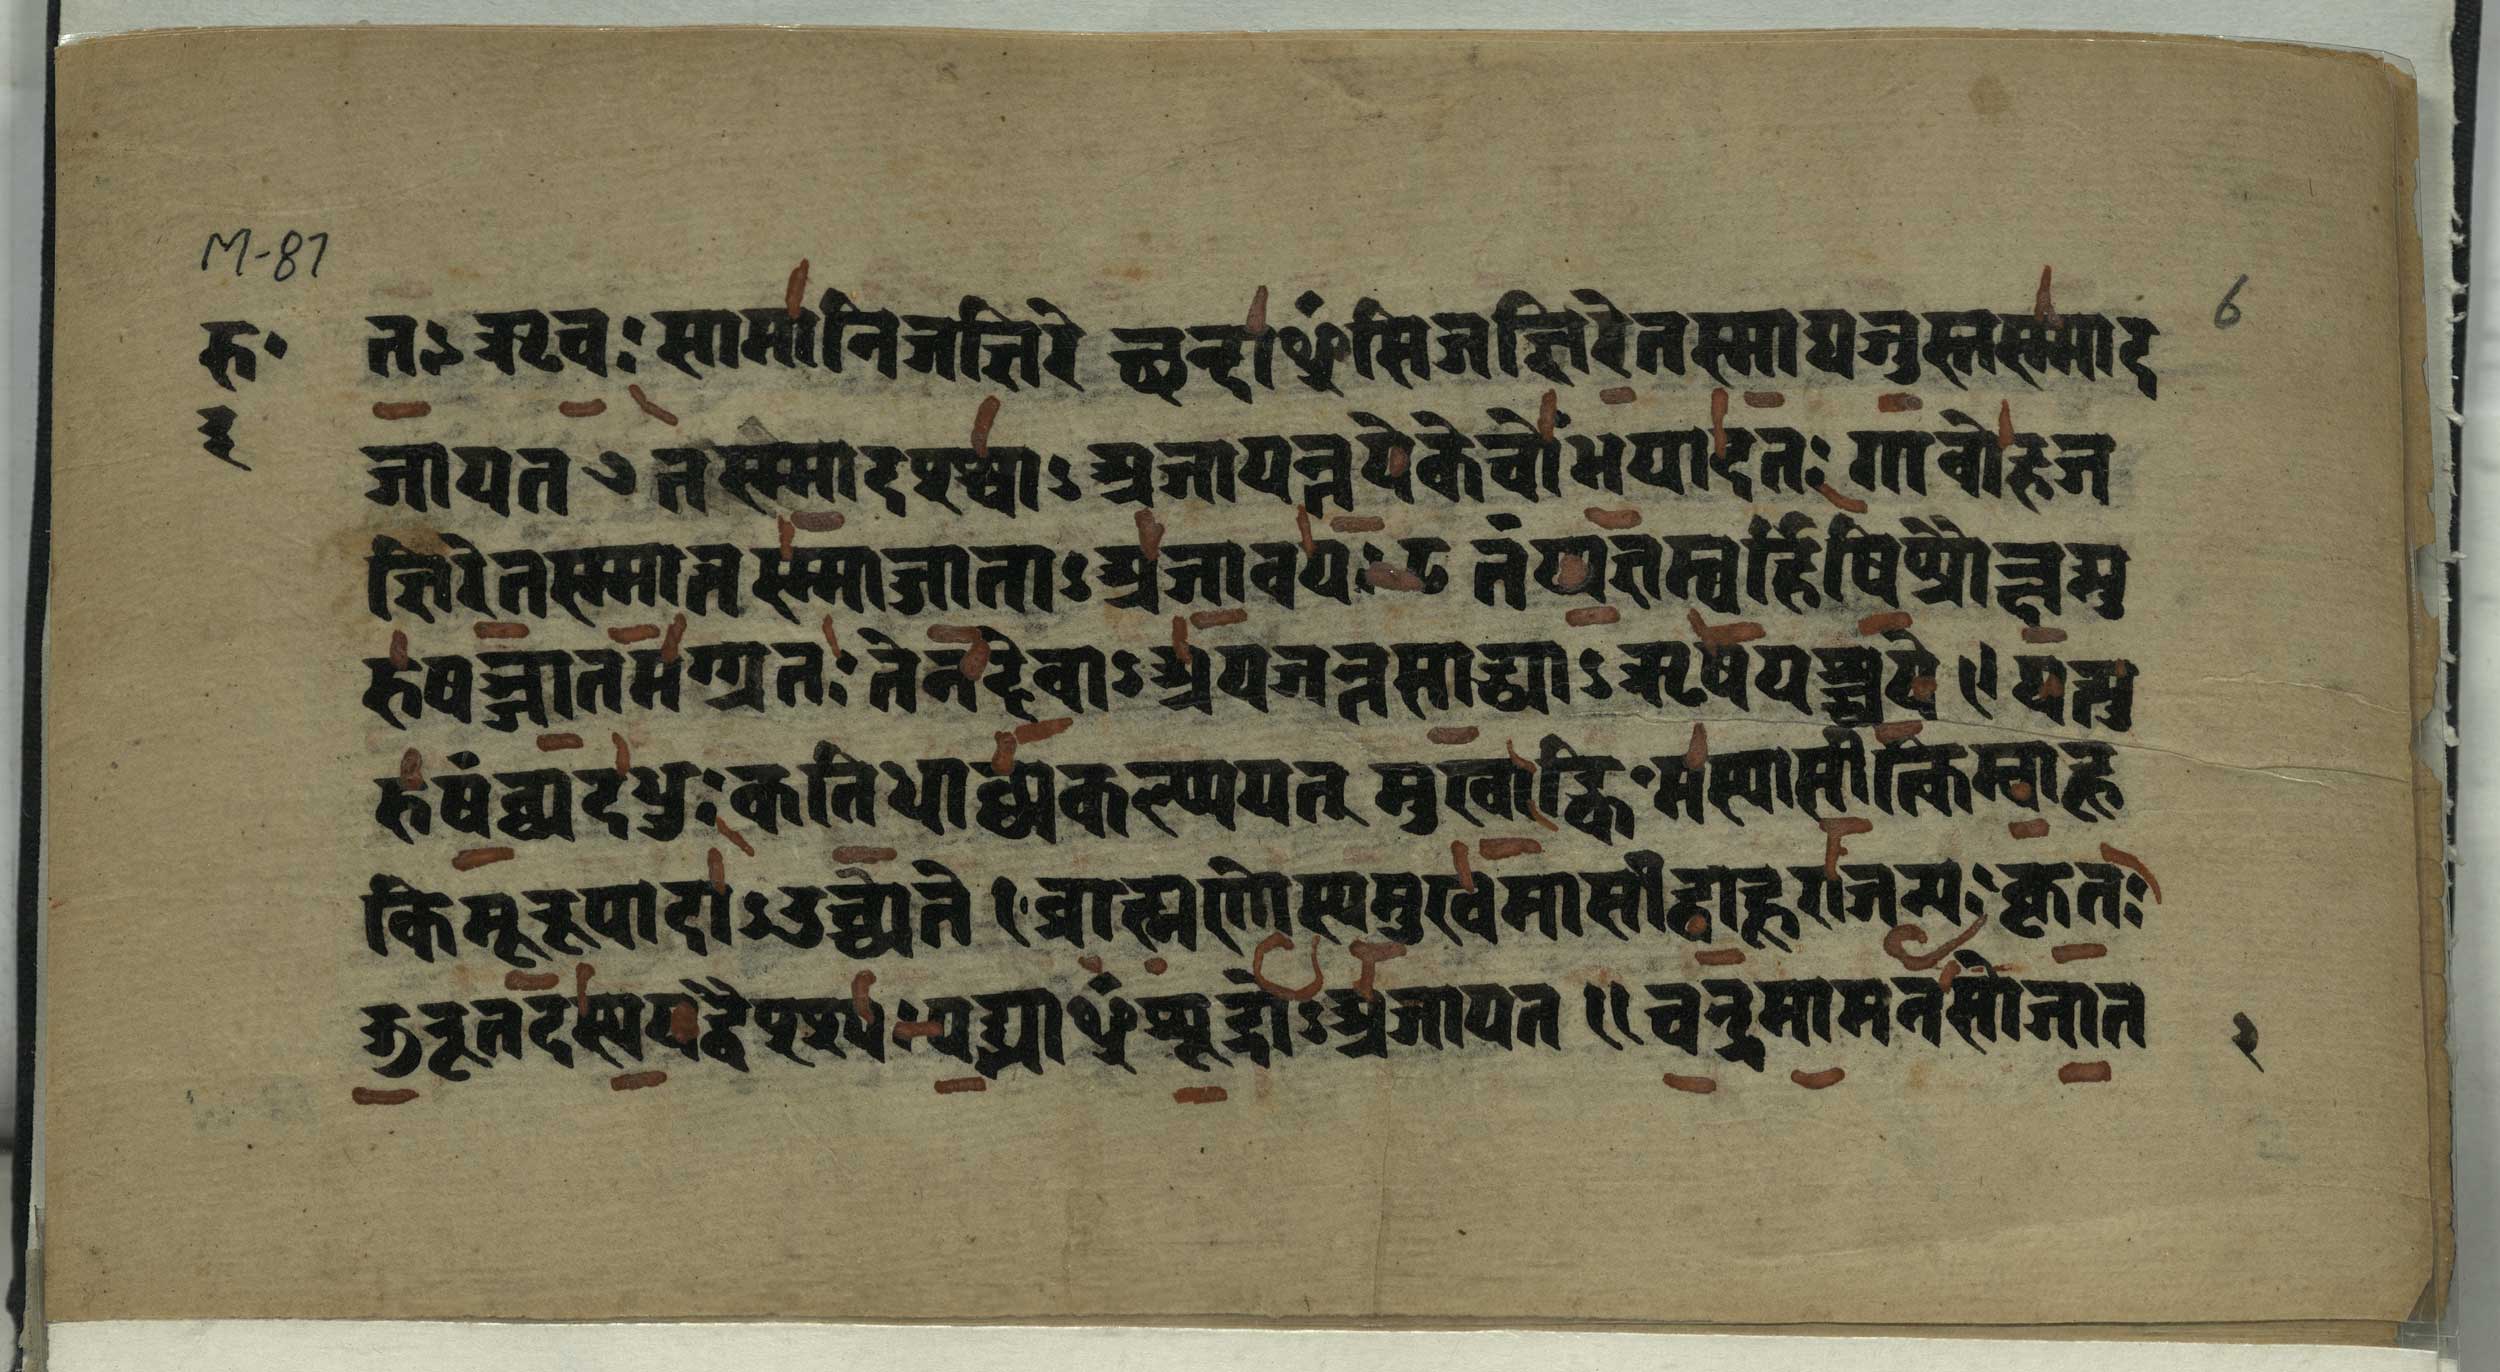 M-87
6
रु॰
३
तऽऋचः सामानिजज्ञिरे छन्दाᳪसिजज्ञिरेतस्माद्यजुस्तस्म्माद
जायत ७ तस्म्मादश्श्वाऽअजायन्तयेकेचोभयादतः गावोहज
ज्ञिरेतस्म्मात्तस्म्माज्जाताऽअजावयः ८ तंय्यज्ञम्बर्हिषिप्रौक्षन्पु
रुषञ्जातमग्ग्रतः तेनदेवाऽअयजन्तसाद्ध्याऽऋषयश्च्चये ९ यत्पु
रुषंव्यदधुः कतिधाव्यकल्प्पयन् मुखङ्किमस्यासीत्किम्बाहू
किमूरूपादाऽउच्च्येते १॰ ब्राह्मणोस्यमुखमासीद्बाहूराजन्यः कृतः
ऊरूतदस्ययद्वैश्श्यः पद्भ्याᳪशूद्रोऽअजायत ११ चन्द्रमामनसोजात
२